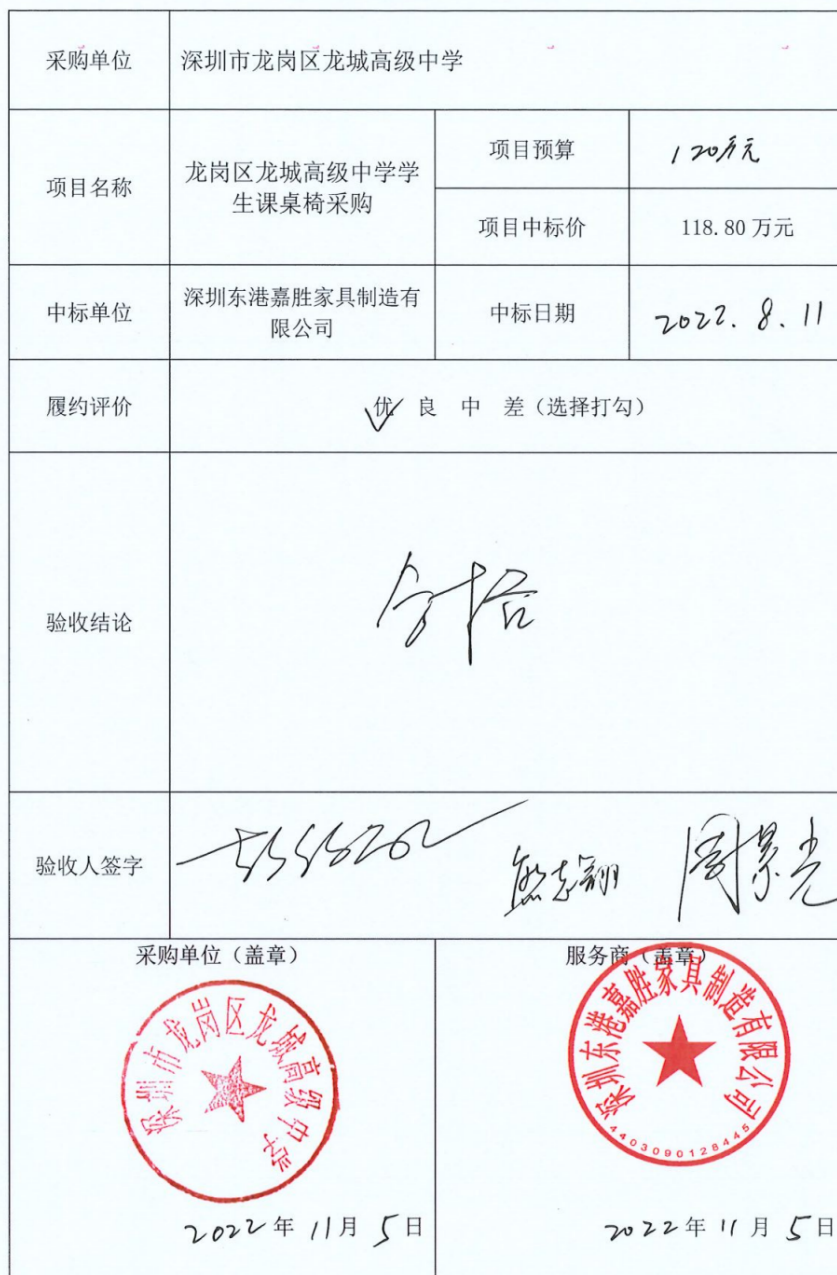 采购单位
深圳市龙岗区龙城高级中学
项目名称
龙岗区龙城高级中学学
生课桌椅采购
项目预算
120万元
项目中标价
118.80 万元
中标单位
深圳东港嘉胜家具制造有
限公司
中标日期
2022.8.11
履约评价
优 良 中 差（选择打勾）
验收结论
合格
验收人签字
熊志翔
周景光
采购单位（盖章）
服务商（盖章）
深圳市龙岗区龙城高级中学
深圳东港嘉胜家具制造有限公司
4403090128445
2022年11月5日
2022年11月5日